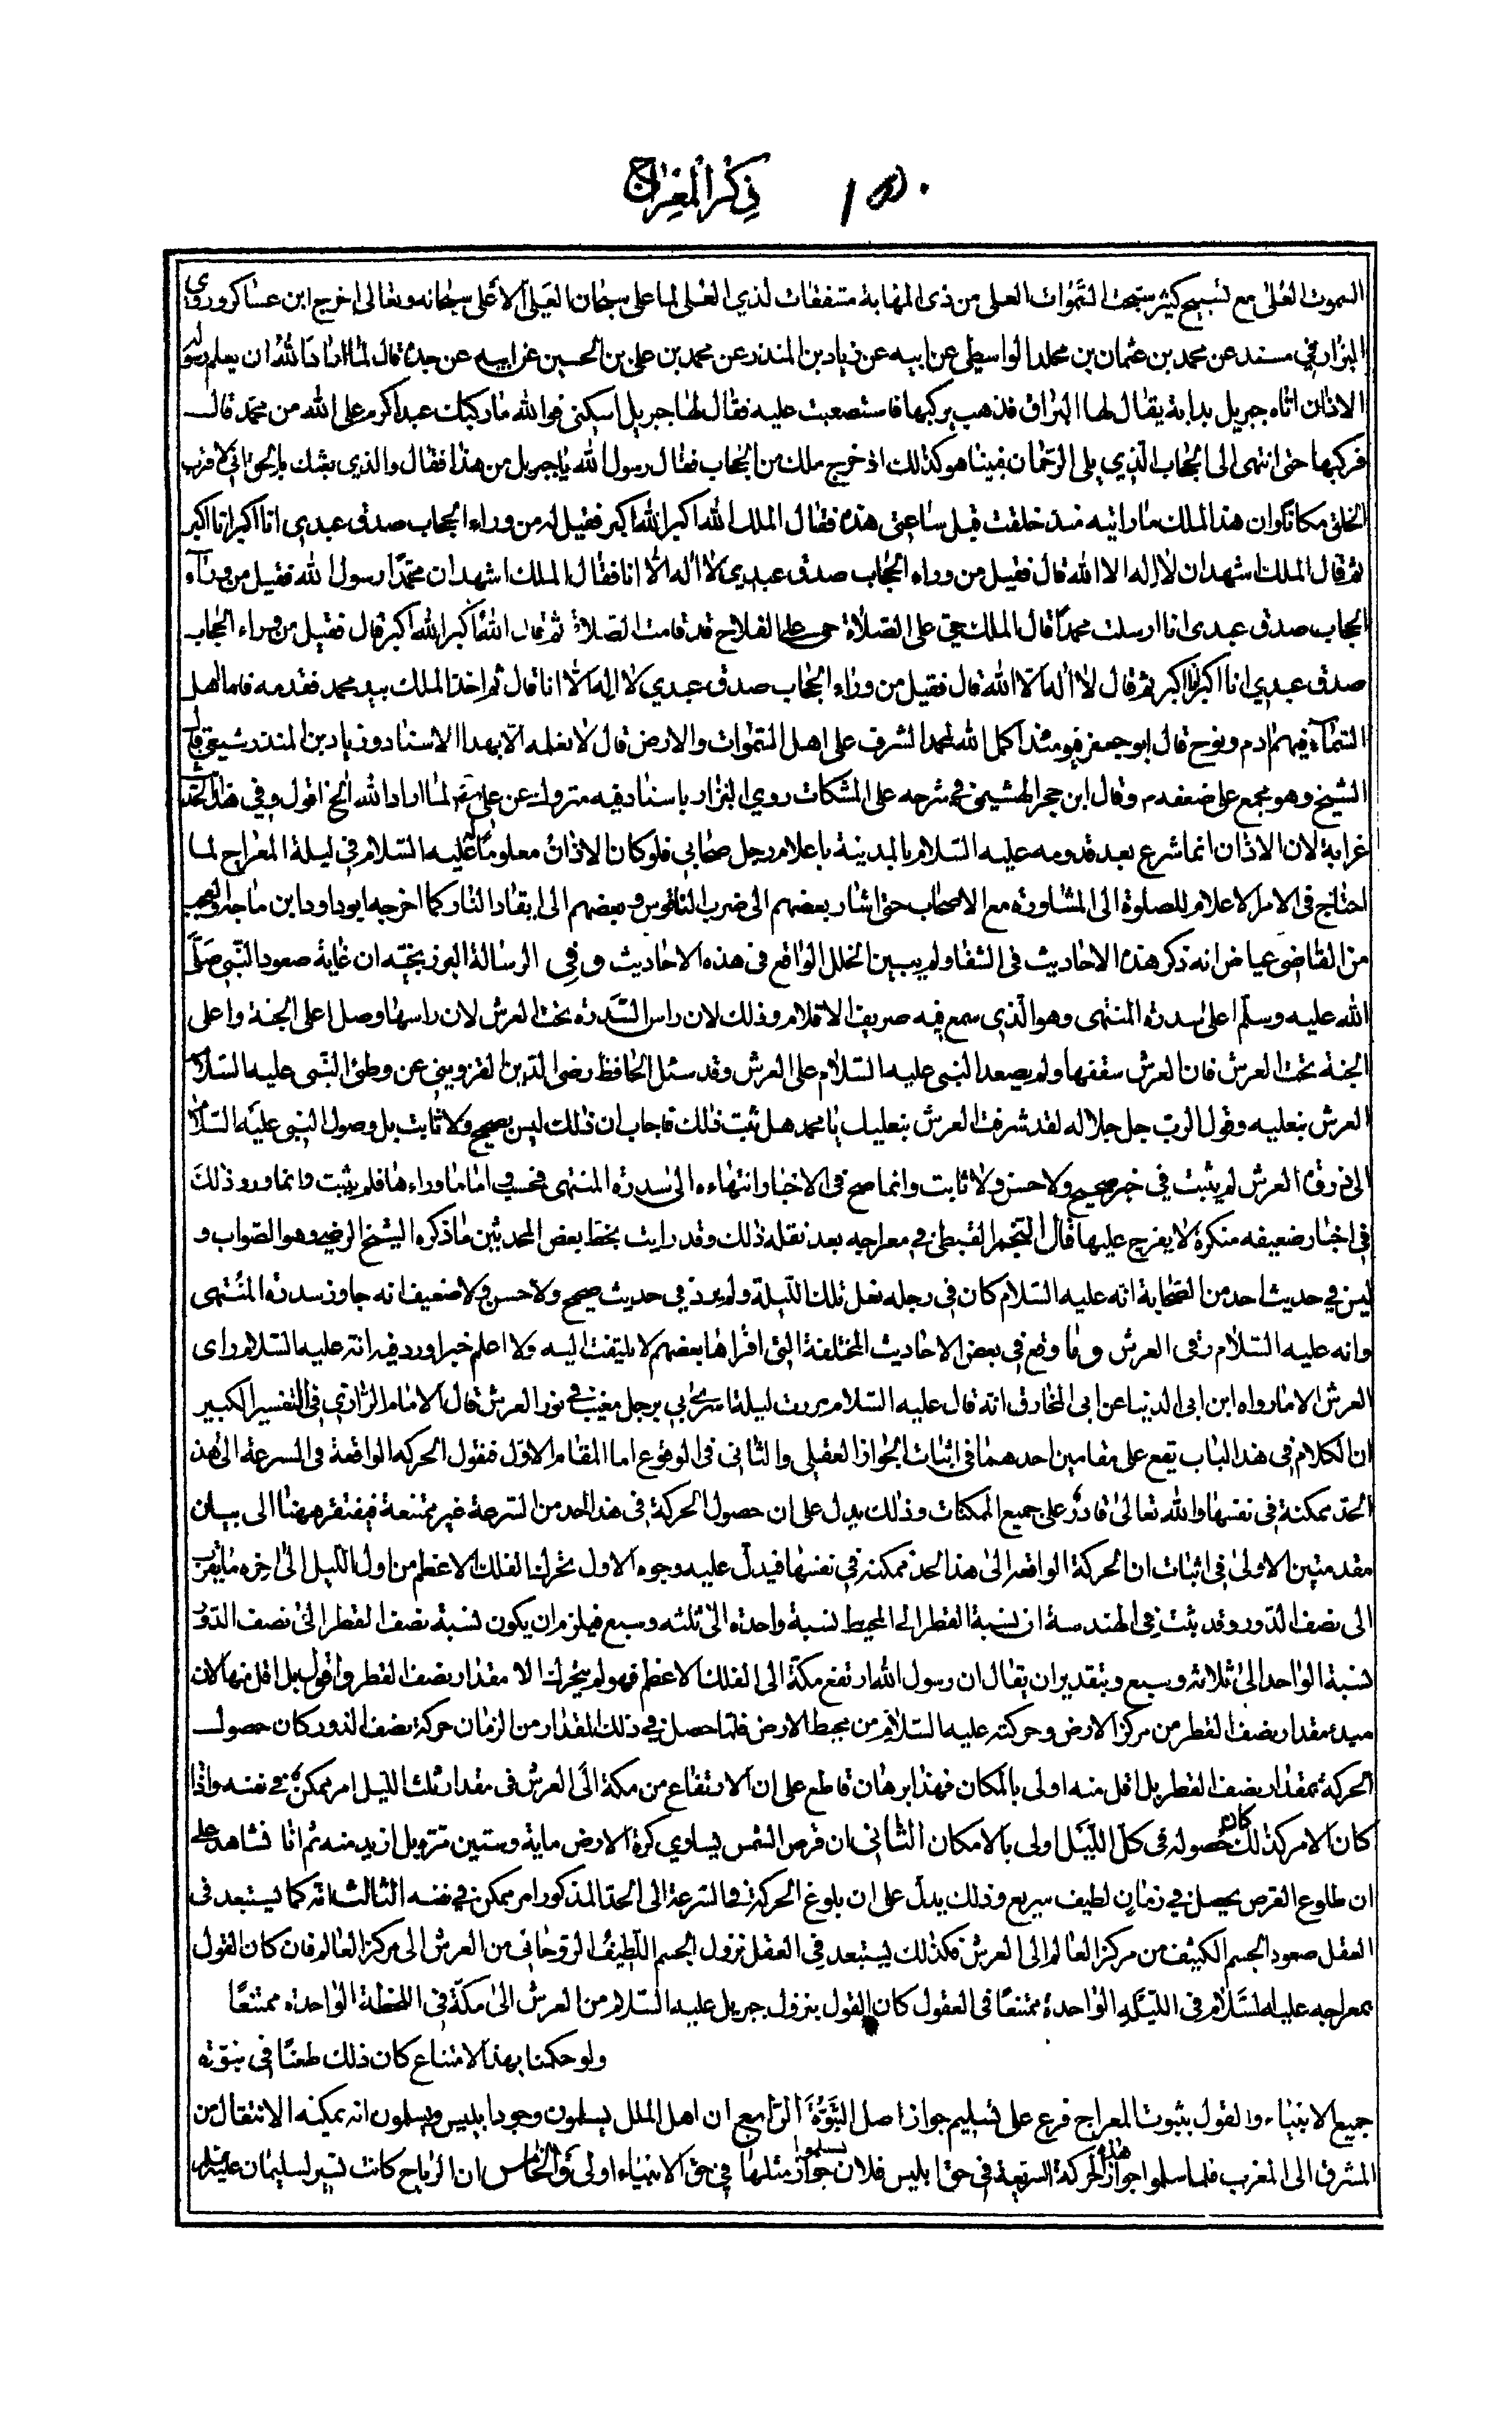 ١٥٠ ذكر المعراج
السموت العلى مع تسبيح كثير سبحت السموات العلى من ذى المهابة مشفقات لذي العلى لما على سبحان العلى الاعلى سبحانه وتعالى اخرج ابن عساكر وروى
البزار في مسند عن محمد بن عثمان بن مخلد الواسطى عن ابيه عن زياد بن المنذر عن محمد بن على بن الحسين عن ابيه عن جده قال لما اراد الله ان يعلم رسوله
الاذان اتاه جبريل بدابة يقال لها البراق فذهب يركبها فاستصعبت عليه فقال لها جبريل اسكنى فوالله ما ركبك عبد اكرم على الله من محمد قال
فركبها حتى انتهى الى الحجاب الذي يلى الرحمان فبينا هو كذلك اذ خرج ملك من الحجاب فقال رسول الله يا جبريل من هذا فقال والذي بعثك بالحق انى لاقرب
الخلق مكانا وان هذا الملك ما رايته منذ خلقت قبل ساعتى هذه فقال الملك الله اكبر الله اكبر فقيل له من وراء الحجاب صدق عبدي انا اكبر انا اكبر
ثم قال الملك اشهد ان لا اله الا الله قال فقيل من وراء الحجاب صدق عبدي لا اله الا انا فقال الملك اشهد ان محمدا رسول الله فقيل من وراء
الحجاب صدق عبدى انا ارسلت محمدا قال الملك حى على الصلاة حى على الفلاح قد قامت الصلاة ثم قال الله اكبر الله اكبر قال فقيل من وراء الحجاب
صدق عبدي انا اكبر انا اكبر ثم قال لا اله الا الله قال فقيل من وراء الحجاب صدق عبدي لا اله الا انا قال ثم اخذ الملك بيد محمد فقدمه فام اهل
السماء فيهم ادم ونوح قال ابو جعفر فيومئذ اكمل الله لمحمد الشرف على اهل السموات والارض قال لا نعلمه الا بهذا الاسناد وزياد بن المنذر شيعى قال
الشيخ وهو مجمع على ضعفه وقال ابن حجر الهيثمى في شرحه على المشكات روي البزار باسناد فيه متروك عن على لما اراد الله الخ اقول وفي هذا الحديث
غرابة لان الاذان انما شرع بعد قدومه عليه السلام بالمدينة باعلام رجل صحابي فلو كان الاذان معلوما له عليه السلام في ليلة المعراج لما
احتاج فى الامر الاعلام للصلوة الى المشاورة مع الاصحاب حتى اشار بعضهم الى ضرب الناقوس وبعضهم الى ايقاد النار كما اخرجه ابو داود وابن ماجه والعجب
من القاضى عياض انه ذكر هذه الاحاديث فى الشفا ولم يبين الخلل الواقع فى هذه الاحاديث وفي الرسالة البرزنجيه ان غاية صعود النبى صلى
الله عليه وسلم اعلى سدرة المنتهى وهو الذي سمع فيه صريف الاقلام وذلك لان راس السدرة تحت العرش لان راسها وصل اعلى الجنة واعلى
الجنة تحت العرش فان العرش سقفها ولم يصعد النبى عليه السلام على العرش وقد سئل الحافظ رضى الدين القزوينى عن وطئ النبى عليه السلام
العرش بنعليه وقول الرب جل جلاله لقد شرفت العرش بنعليك يا محمد هل ثبت ذلك فاجاب ان ذلك ليس بصحيح ولا ثابت بل وصول النبى عليه السلام
الى ذروة العرش لم يثبت في خبر صحيح ولا حسن ولا ثابت وانما صح فى الاخبار انتهاءه الى سدرة المنتهى فحسب اما ما وراءها فلم يثبت وانما ورد ذلك
فى اخبار ضعيفه منكرة لا يعرج عليها قال النجم الغيطى في معراجه بعد نقله ذلك وقد رايت بخط بعض المحدثين ما ذكره الشيخ الرضى وهو الصواب و
ليس في حديث احد من الصحابة انه عليه السلام كان فى رجله نعل تلك الليلة ولم يرد في حديث صحيح ولا حسن ولا ضعيف انه جاوز سدرة المنتهى
وانه عليه السلام رقى العرش وما وقع فى بعض الاحاديث المختلفة التى افتراها بعضهم لا يلتفت اليه ولا اعلم خبرا ورد فيه انه عليه السلام راى
العرش الا ما رواه ابن ابى الدنيا عن ابى المخارق انه قال عليه السلام مررت ليلة اسري بي برجل مغيب في نور العرش قال الامام الرازي فى التفسير الكبير
ان الكلام فى هذا الباب يقع على مقامين احدهما فى اثبات الجواز العقلى والثانى فى الوقوع اما المقام الاول فنقول الحركة الواقعة فى السرعة الى هذ
الحد ممكنة فى نفسها والله تعالى قادر على جميع الممكنات وذلك يدل على ان حصول الحركة فى هذا الحد من السرعة غير ممتنعة فيفتقر ههنا الى بيان
مقدمتين الاولى فى اثبات ان الحركة الواقعه الى هذا الحد ممكنه في نفسها فيدل عليه وجوه الاول تحرك الفلك الاعظم من اول الليل الى اخره ما يقرب
الى نصف الدور وقد ثبت في الهندسة ان نسبة القطر الى المحيط نسبة واحدة الى ثلثه وسبع فيلزم ان يكون نسبة نصف القطر الى نصف الدور
نسبة الواحد الى ثلاثه وسبع وبتقدير ان يقال ان رسول الله ارتفع مكة الى الفلك الاعظم فهو لم يتحرك الا مقدار نصف القطر واقول بل اقل منها لان
مبدء مقدار نصف القطر من مركز الارض وحركته عليه السلام من محيط الارض فلما حصل في ذلك المقدار من الزمان حركة نصف الدور كان حصول
الحركة بمقدار نصف القطر بل اقل منه اولى بالمكان فهذا برهان قاطع على ان الارتفاع من مكة الى العرش فى مقدار ثلث الليل امر ممكن في نفسه واذا
كان الامر كذلك كان حصوله فى كل الليل اولى بالامكان الثانى ان قرص الشمس يساوي كرة الارض ماية وستين مرة بل ازيد منه ثم انا نشاهد على
ان طلوع القرص يحصل في زمان لطيف سريع وذلك يدل على ان بلوغ الحركة فى السرعة الى الحد المذكور امر ممكن في نفسه الثالث انه كما يستبعد فى
العقل صعود الجسم الكثيف من مركز العالم الى العرش فكذلك يستبعد فى العقل نزول الجسم اللطيف الروحانى من العرش الى مركز العالم فان كان القول
بمعراجه عليه السلام فى الليلة الواحدة ممتنعا فى العقول كان القول بنزول جبريل عليه السلام من العرش الى مكة فى اللحظة الواحدة ممتنعا
ولو حكمنا بهذا الامتناع كان ذلك طعنا فى نبوته
جميع الانبياء والقول بثبوت المعراج فرع على تسليم جواز اصل النبوة الرابع ان اهل الملل يسلمون وجود ابليس ويسلمون انه يمكنه الانتقال من
المشرق الى المغرب فلما سلموا جواز هذه الحركة السريعة فى حق ابليس فلان يسلموا جواز مثلها في حق الانبياء اولى والخامس ان الرياح كانت تسير لسليمان عليه السلام